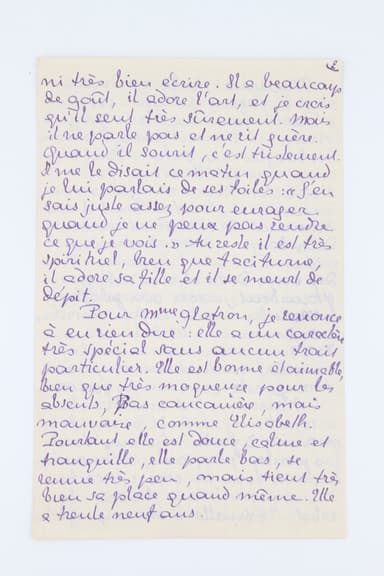 2
ni très bien écrire. Il a beaucoup
de goût, il adore l'art, et je crois
qu'il sent très sûrement. Mais
il ne parle pas et ne rit guère.
Quand il sourit, c'est tristement.
Il me le disait ce matin, quand
je lui parlais de ses toiles : « J'en
sais juste assez pour enrager
quand je ne peux pas rendre
ce que je vois. » Au reste il est très
spirituel, bien que taciturne,
il adore sa fille et il se meurt de
dépit.
Pour Mme Glatron, je renonce
à en rien dire : elle a un caractère
très spécial sans aucun trait
particulier. Elle est bonne et aimable,
bien que très moqueuse pour les
absents, Pas cancanière, mais
mauvaise, comme Elisabeth.
Pourtant elle est douce, calme et
tranquille, elle parle bas, se
remue très peu, mais tient très
bien sa place quand même. Elle
a trente neuf ans.